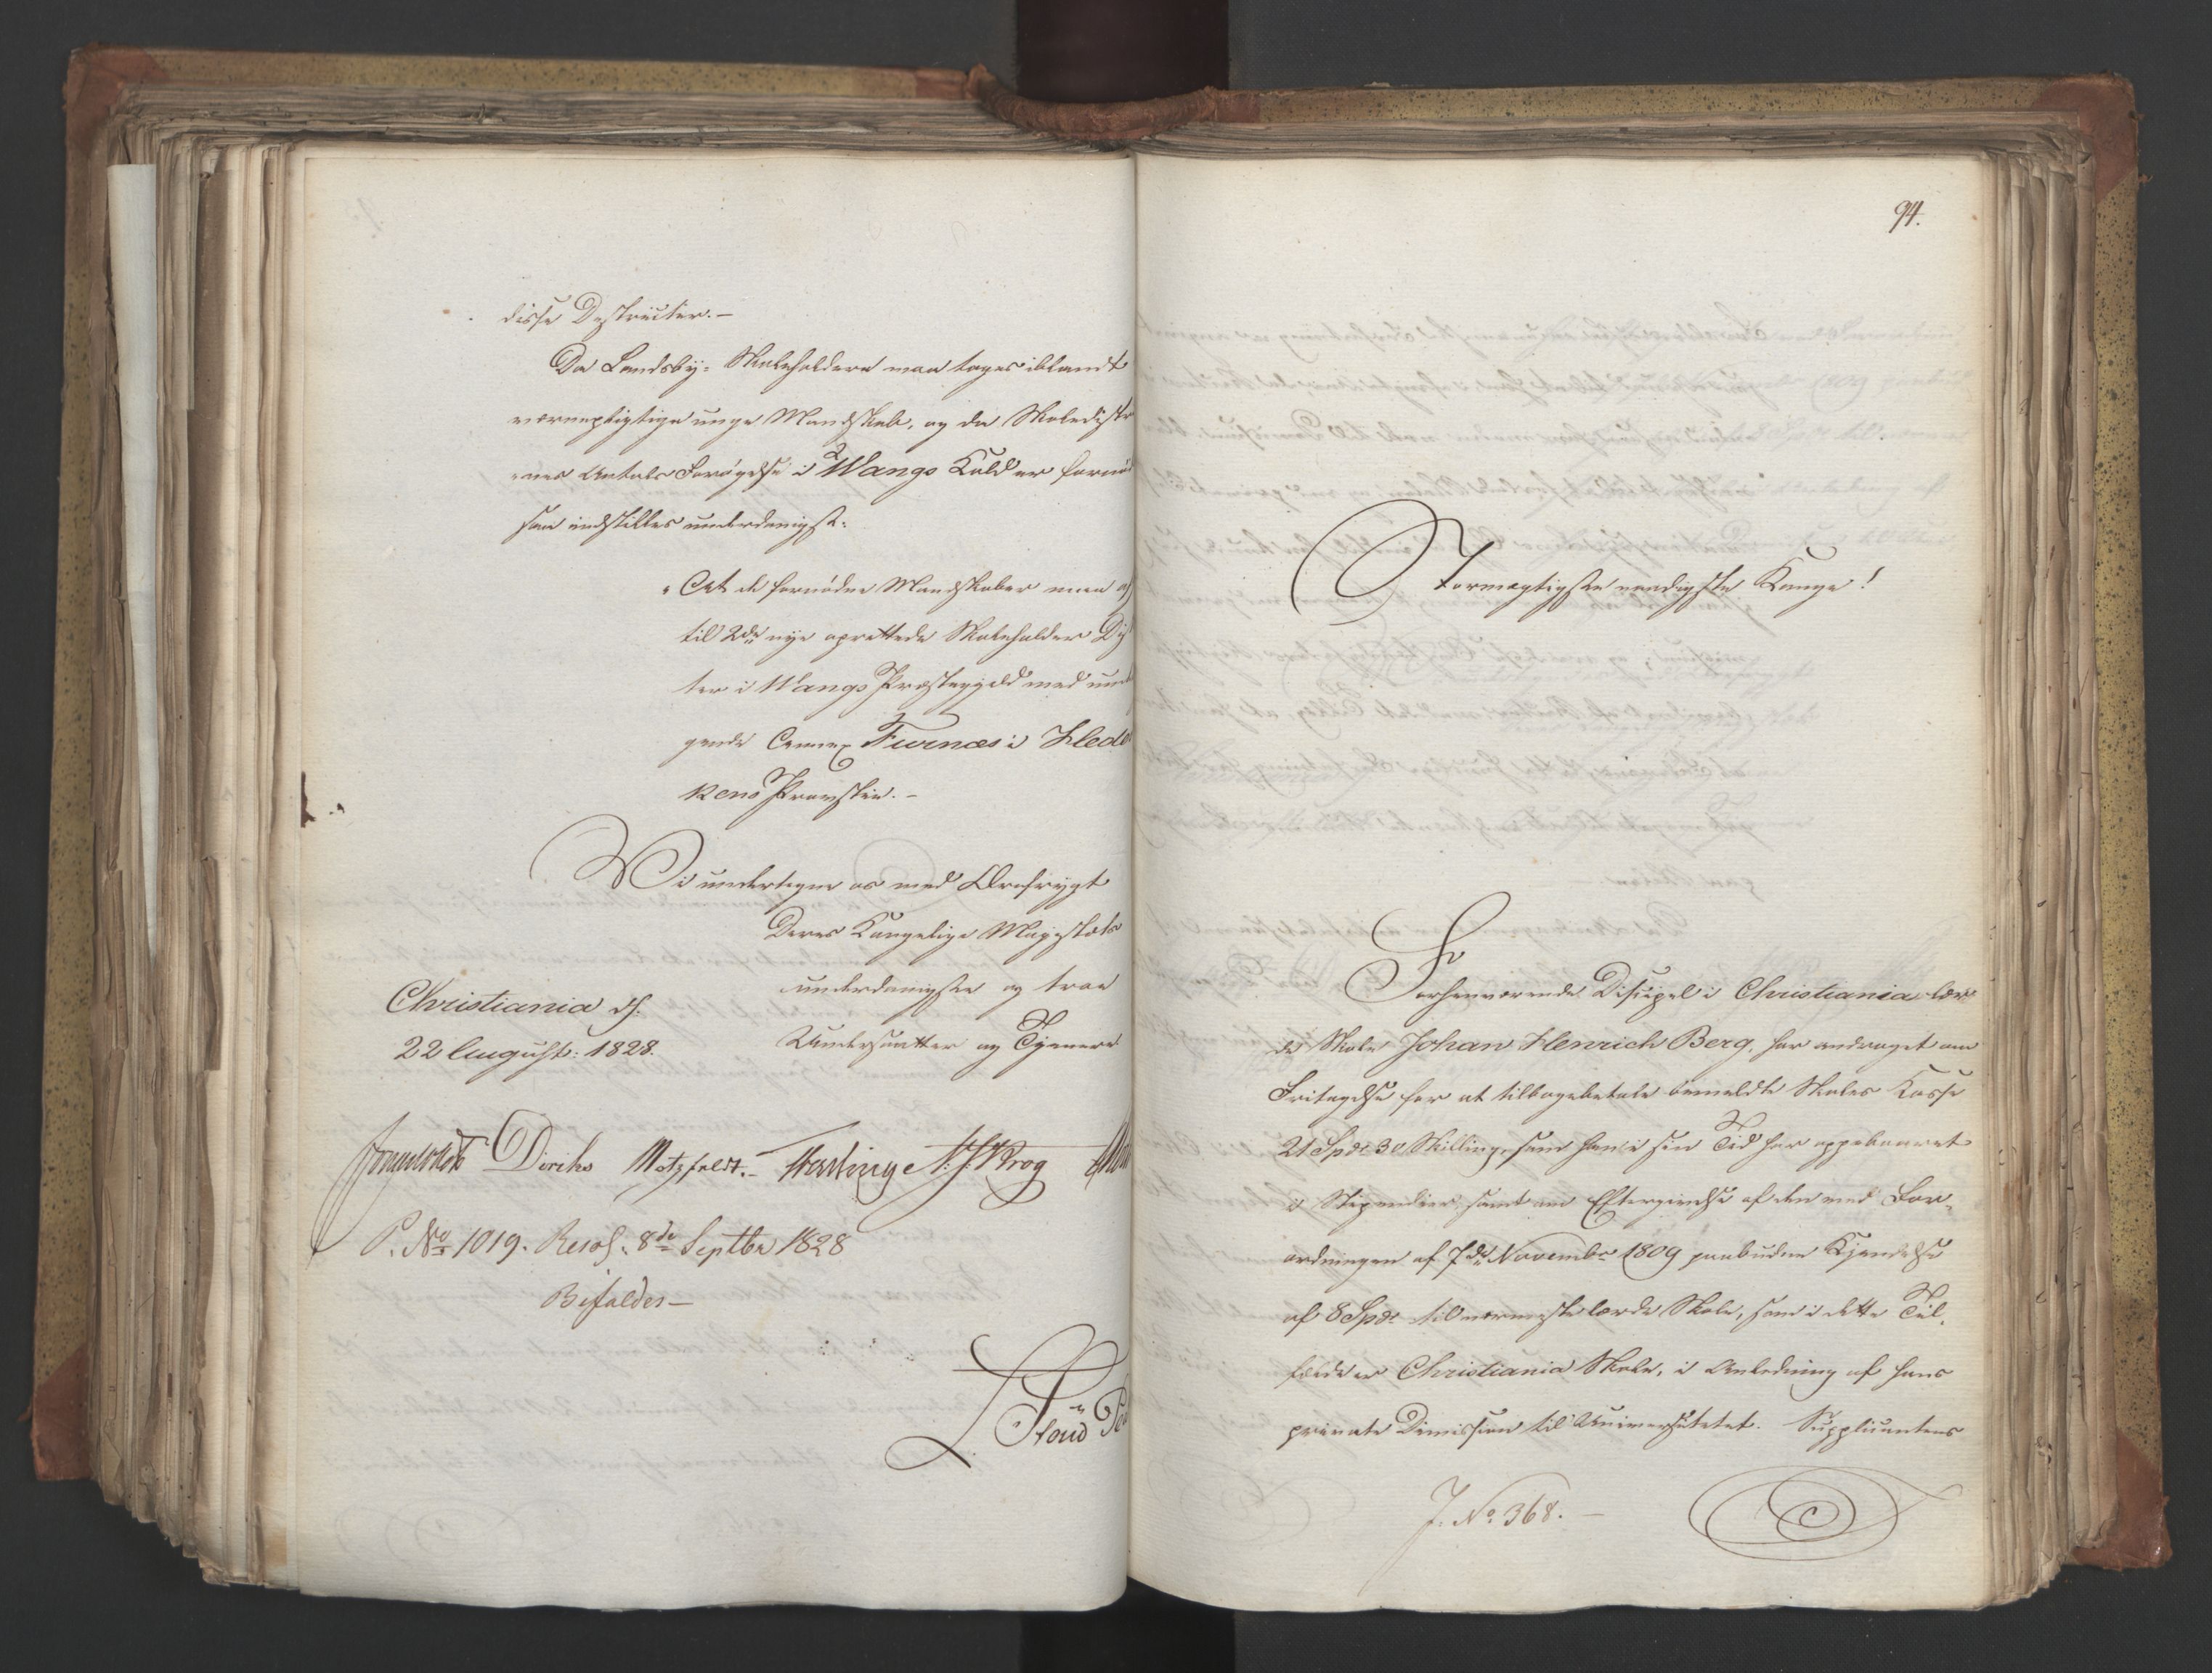 disse Destricter.–
Da Landsby-Skoleholdere maa tages iblandt
værnepligtige unge Mandskab, og da Skoledistr
ernes Antals Forøgelse i Wangs Kald er fornød
saa indstilles underdanigst:
"At de fornødne Mandskaber maa
til 2de nye oprettede Skoleholder Di
ter i Wangs Præstegjeld med
gende Annex Furnæs i Hede
kens Provstie.–
Vi undertegne os med Ærefrygt
Deres Kongelige Majestæts
underdanigste og troe
Undersaatter og Tjenere
Christiania d.
22 August: 1828.
Diriks Motzfeldt. N: J: Krog
P. No 1019. Resol. 8de Septbr 1828
Bifaldes–
94.
Stormægtigste naadigste Konge!
Forhenværende Discipel i Christiania lær-
de Skole Johan Henrich Berg, har andraget om
Fritagelse for at tilbagebetale bemeldte Skoles Kasse
21 Spdr 30 Skilling, som han i sin Tid har oppebaaret
i Stipendier, samt om Eftergivelse af den ved For-
ordningen af 7de Novembr 1809 paabudne Kjendelse
af 8 Spdr til nærmeste lærde Skole, som i dette Til-
fælde er Christiania Skole, i Anledning af hans
private Dimission til Universitetet. Supplicantens
J. No. 368.–